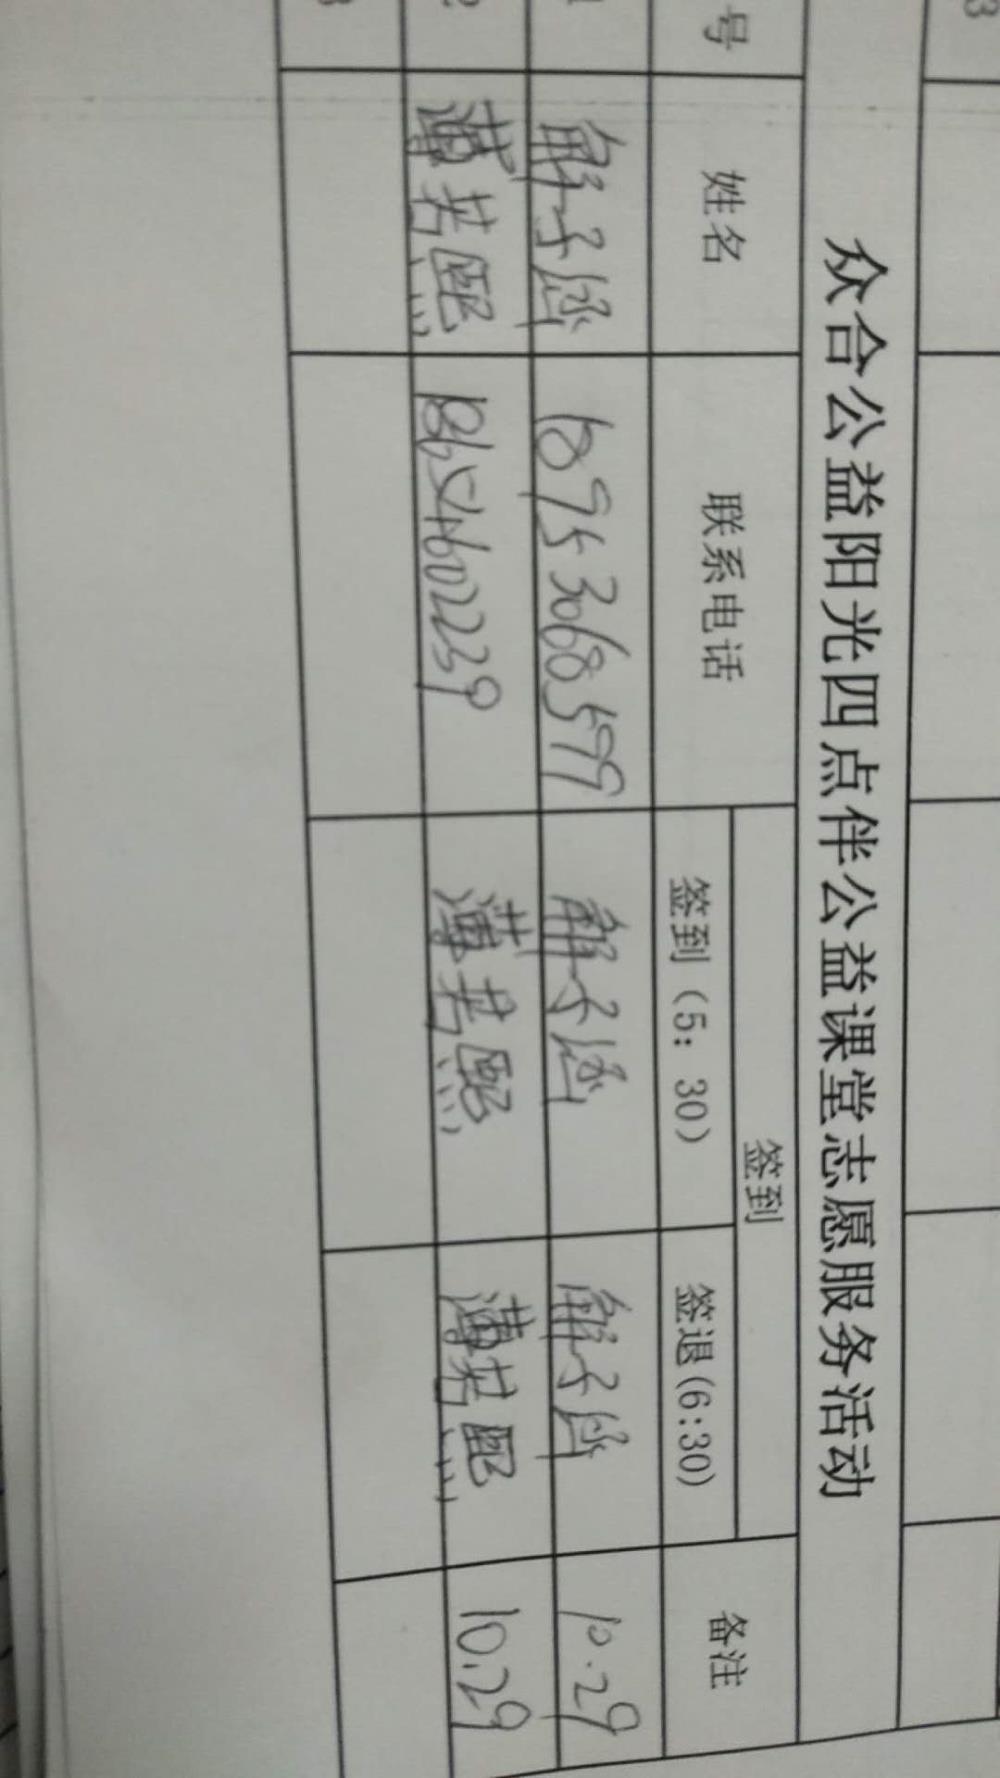 3
众合公益阳光四点伴公益课堂志愿服务活动
号 姓名 联系电话 签到 备注
签到（5：30） 签退(6:30)
1 解子涵 解子涵 解子涵 10.29
2 薄若熙 薄若熙 薄若熙 10.29
3